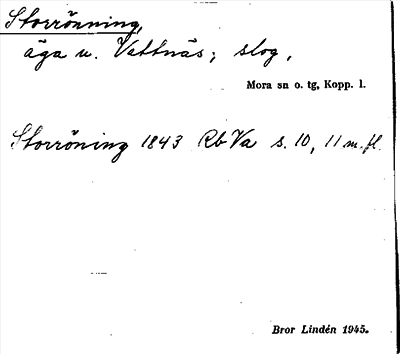 Storrönning,
äga u. Vattnäs; slog,
Mora sn o. tg, Kopp. l.
Storröning 1843 Rb Va s. 10, 11 m. fl.
Bror Lindén 1945.